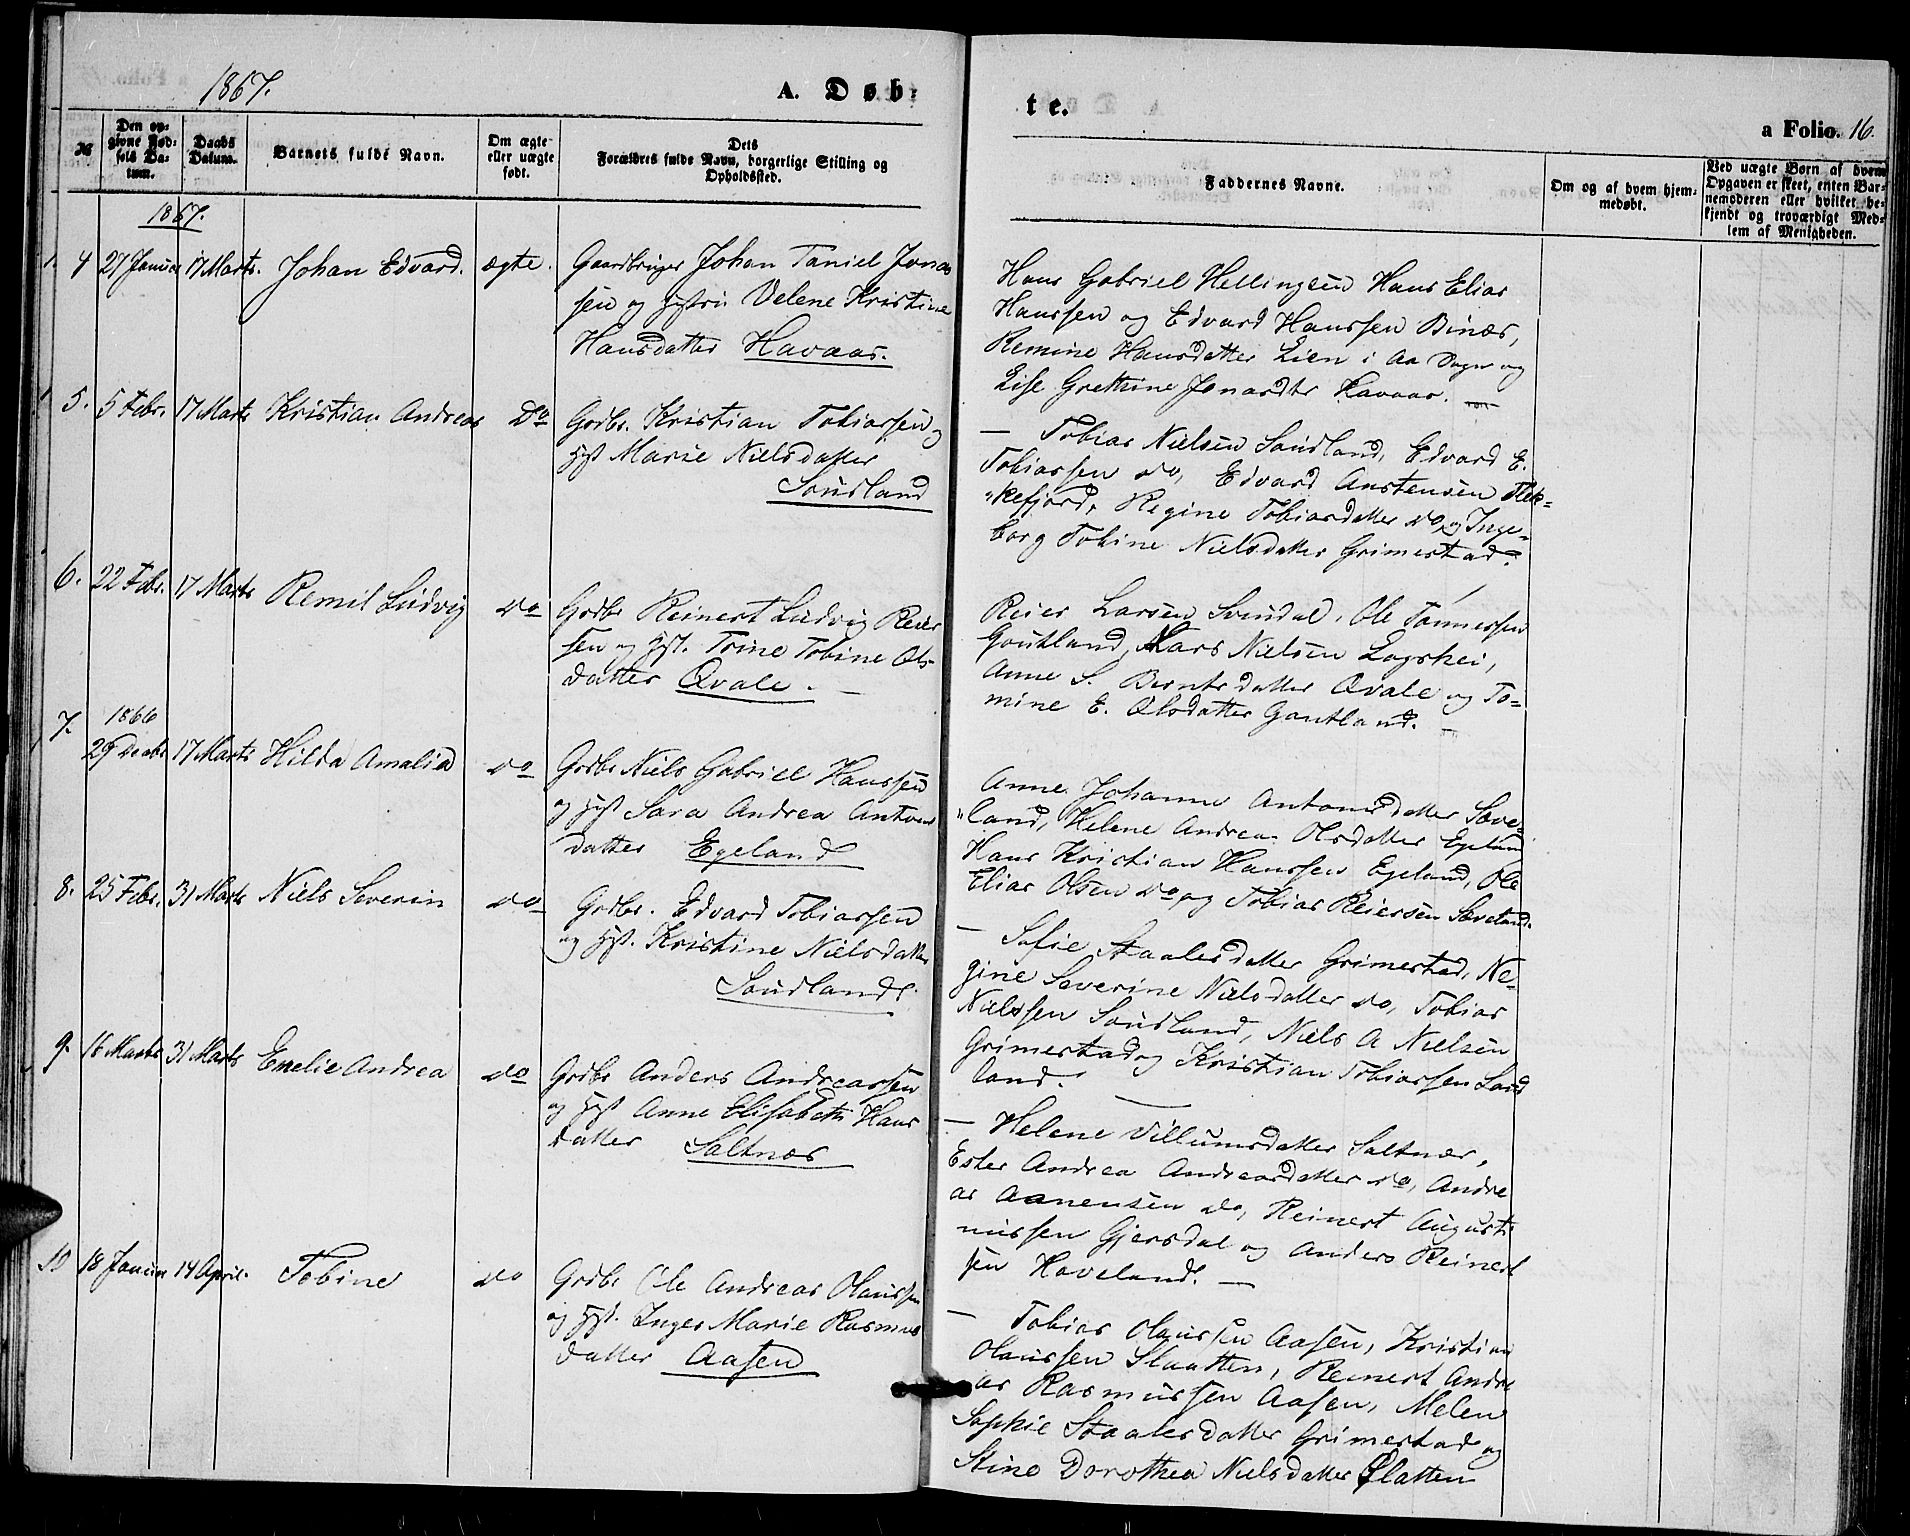 1867.
A. Døb-
te.
a Folio. 16.
№
Den op-
givne Fød-
sels Da-
tum.
Daabs
Datum.
Barnets fulde Navn.
Om ægte
eller uægte
født.
Dets
Forældres fulde Navn, borgerlige Stilling og
Opholdssted.
Faddernes Navne.
Om og af hvem hjem-
medøbt.
Ved uægte Børn af hvem
Opgaven er skeet, enten Bar-
nemoderen eller hvilket be-
kjendt og troværdigt Med-
lem af Menigheden.
1867.
4 27 Januar 17 Marts. Johan Edvard. ægte. Gaardbruger Johan Taniel Jonas
sen og Hustru Velene Kristine
Hansdatter Havaas.
Hans Gabriel Hellingsen Hans Elias
Hanssen og Edvard Hanssen Binæs,
Remine Hansdatter Lien i Aa Sogn og
Lise Grethine Jonasdtr Havaas.
5. 5 Febr. 17 Marts Kristian Andreas Do Grdbr. Kristian Tobiassen og
Hust Marie Nielsdatter
Soudland
— Tobias Nielsen Soudland, Edvard E.
Tobiassen do, Edvard Anstensen Flek-
"kefjord, Regine Tobiasdatter do og Inge-
borg Tobine Nielsdatter Grimestad.
6. 22 Febr. 17 Marts Remil Ludvig do Grdbr Reinert Ludvig Reier
sen og Hst. Trine Tobine Ols-
datter Qvale. —
Reier Larsen Svindal, Ole Tønnessen
Goutland, Lars Nielsen Logshei,
Anne S. Berntsdatter Qvale og To-
mine E. Olsdatter Goutland. —
7. 1866
29 Decbr 17 Marts Hilda Amalia do Grdbr Niels Gabriel Hanssen
og Hust Sara Andrea Anton
datter Egeland
Anne Johanne Antonsdatter Sæve-
"land, Helene Andrea Olsdatter Egeland
Hans Kristian Hanssen Egeland, Ole
Elias Olsen do og Tobias Reiersen Sæveland.
8. 25 Febr. 31 Marts Niels Severin do Grdbr. Edvard Tobiassen
og Hst. Kristine Nielsdatter
Soudland.
— Sofie Staalesdatter Grimestad, Re-
gine Severine Nielsdatter do, Tobias
Nielssen Soudland, Niels A Nielsen
Grimestad og Kristian Tobiassen Soud
land.
9. 16 Marts 31 Marts Emelie Andrea do Grdbr Anders Andreassen
og Hust Anne Elisabeth Hans
datter Saltnes
— Helene Villumsdatter Saltnes,
Ester Andrea Andreasdatter do, Andre
as Aanensen do, Reinert Augusti
nussen Gjersdal og Anders Reinert
sen Haveland. —
10 18 Januar 14 April. Tobine do Grdbr Ole Andreas Olaussen
og Hst. Inger Marie Rasmus
datter Aasen
— Tobias Olaussen Aasen, Kristian
Olaussen Slaatten, Reinert Andre
as Rasmussen Aasen, Melen
Sophie Staalesdatter Grimestad og
Stine Dorothea Nielsdatter Slatten